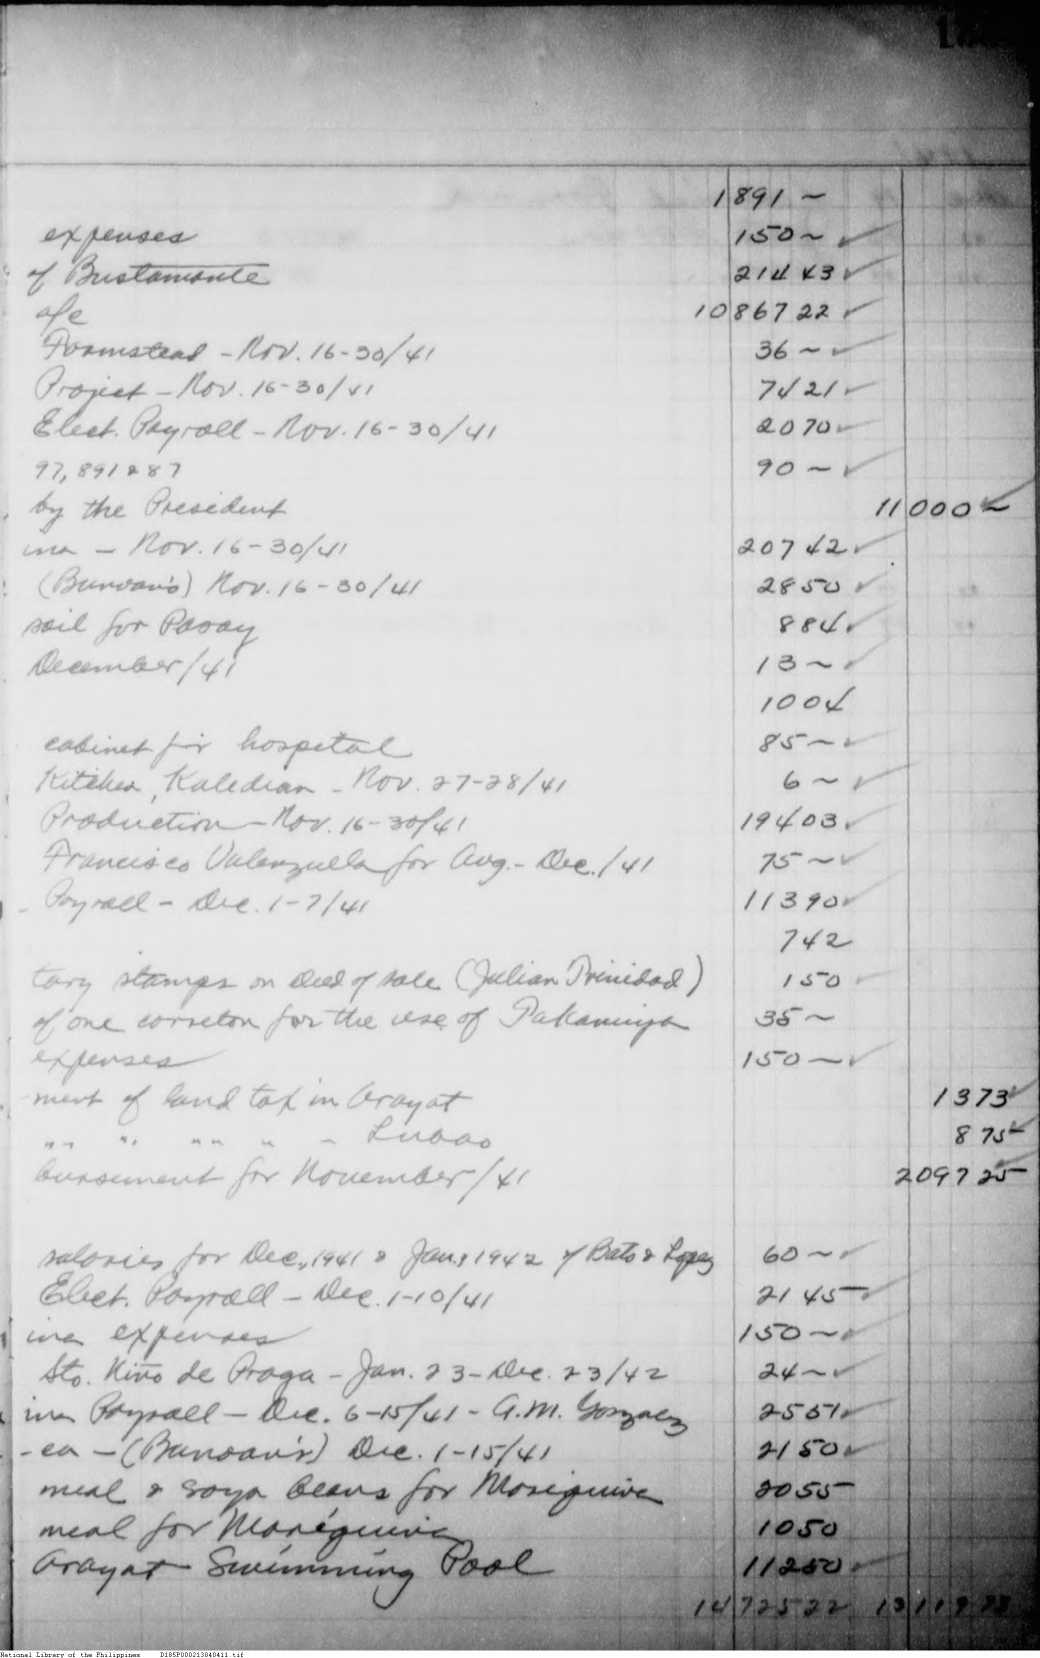 1891 ~
expenses 150 ~ ✓
of Bustamante 214 43 ✓
a/c 10867 22 ✓
Farmstead - Nov. 16-30/41 36 ~ ✓
Project - Nov. 16-30/41 74 21 ✓
Elect. Payroll - Nov. 16-30/41 20 70 ✓
97, 891 & 87 90 ~ ✓
by the President 11000 ~ ✓
ina - Nov. 16-30/41 207 42 ✓
(Bunoan's) Nov. 16-30/41 28 50 ✓
soil for Pasay 8 84 ✓
December/41 13 ~ ✓
10 04
cabinet for hospital 85 ~ ✓
Kitchen, Kaledian - Nov. 27-28/41 6 ~ ✓
Production - Nov. 16-30/41 194 03 ✓
Francisco Valenzuela for Aug. - Dec./41 75 ~ ✓
Payroll - Dec. 1-7/41 113 90 ✓
7 42
tary stamps on deed of sale (Julian Trinidad) 1 50 ✓
of one carreton for the use of 35 ~
expenses 150 ~ ✓
ment of land tax in Arayat 13 73 ✓
" " " " " - Lubao 8 75
bursement for November/41 2097 25 ✓
salaries for Dec., 1941 & Jan., 1942 of Bato & Lopez 60 ~ ✓
Elect. Payroll - Dec. 1-10/41 21 45 ✓
ina expenses 150 ~ ✓
Sto. Niño de Praga - Jan. 23 - Dec. 23/42 24 ~ ✓
ina Payroll - Dec. 6-15/41 - A.M. Gonzalez 25 51 ✓
- ea - (Bunoan's) Dec. 1-15/41 21 50 ✓
meal & soya beans for Mariquina 20 55
meal for Mariquina 10 50
Arayat Swimming Pool 112 50 ✓
14725 22
National Library of the Philippines D185P000213040411.tif